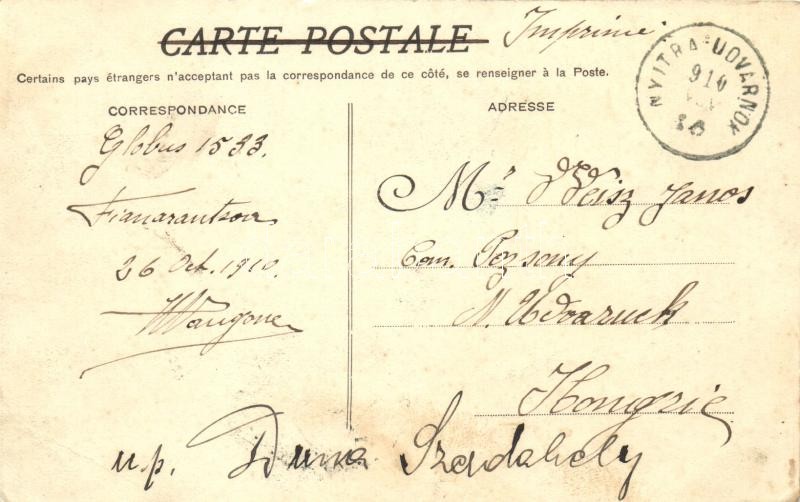 CARTE POSTALE Imprimé
Certains pays étrangers n'acceptant pas la correspondance de ce côté, se renseigner à la Poste.
NYITRA-UDVARNOK
910
CORRESPONDANCE
Globus 1533.
Fianarantsoa
26 Oct. 1910.
ADRESSE
Mr Weisz Janos
Com. Pozsony
N. Udvaruck
Hongrie
u.p. Duna Szerdahely